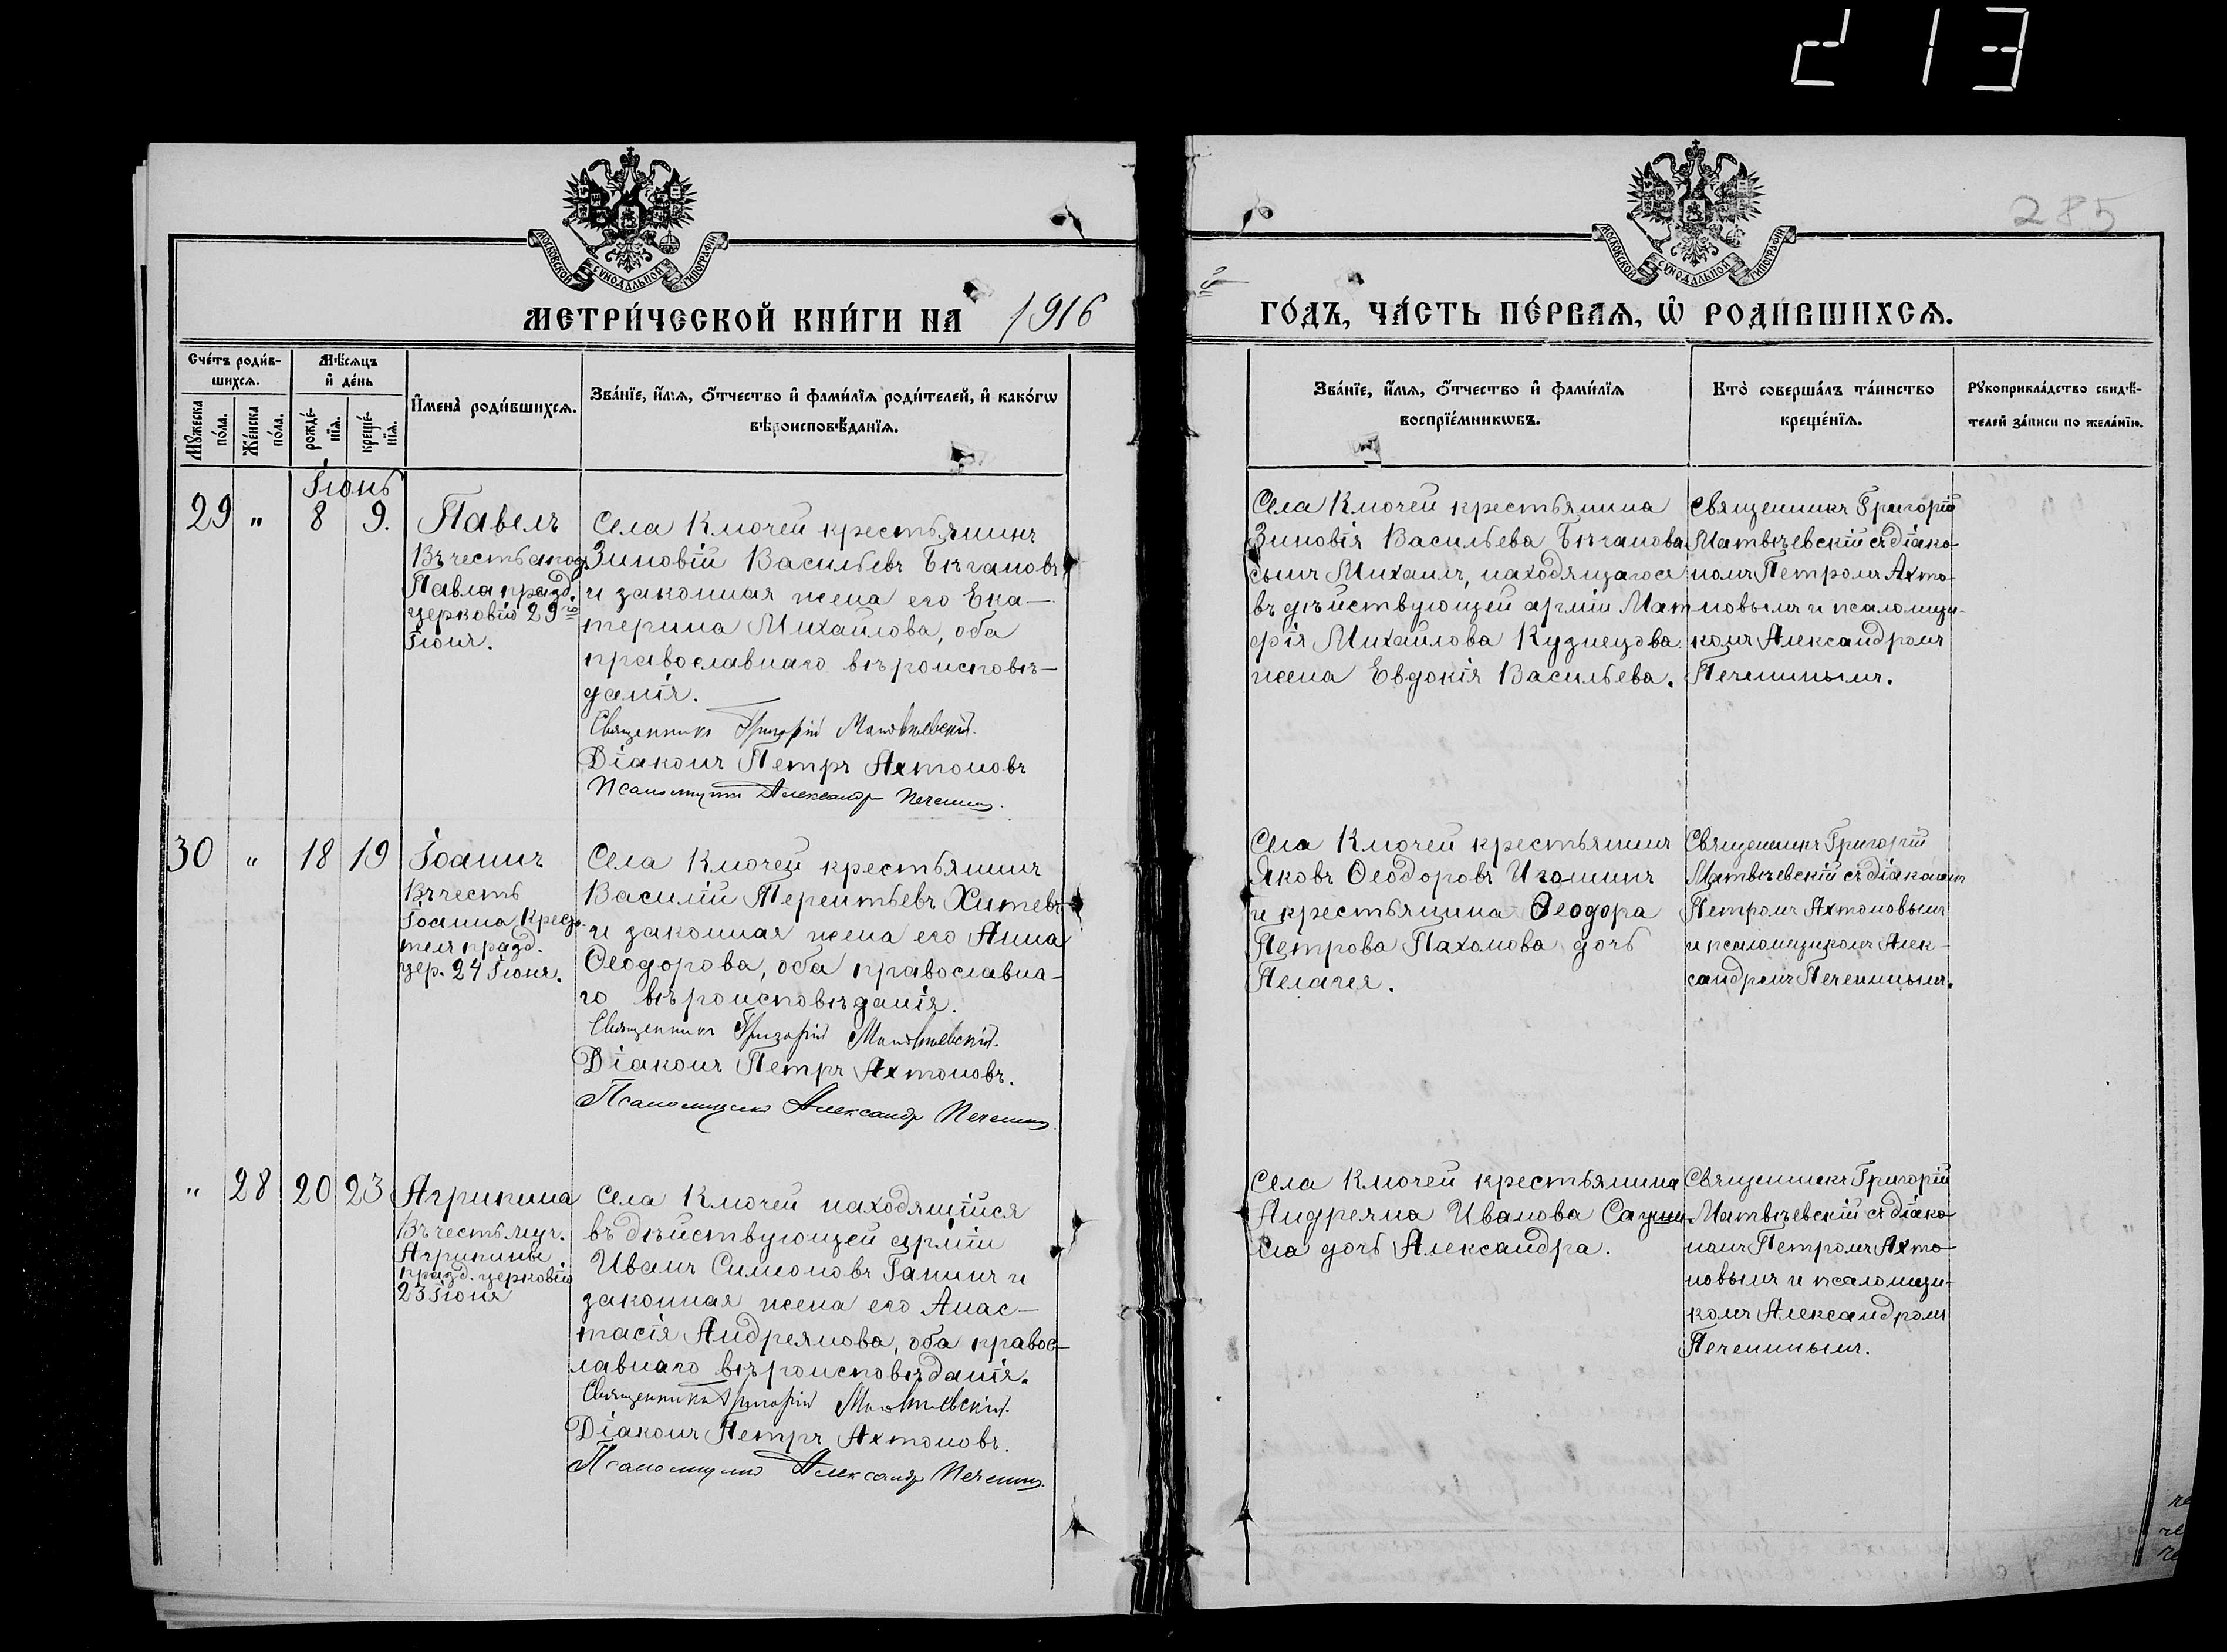 213
285
МОСКОВСКОЙ СУНОДАЛЬНОЙ ТИПОГРАФІИ
МОСКОВСКОЙ СУНОДАЛЬНОЙ ТИПОГРАФІИ
МЕТРИ́ЧЕСКОЙ КНИ́ГИ НА 1916
ГО́ДЪ, ЧА́СТЬ ПЕ́РВАѦ, Ѡ҆ РОДИ́ВШИХСѦ.
Сче́тъ роди́в-
шихсѧ.
Мꙋ́жеска
по́ла.
Же́нска
по́ла.
Мѣ́сѧцъ
и҆ де́нь
рожде́-
нїѧ.
креще́-
нїѧ.
И҆мена̀ роди́вшихсѧ.
Зва́нїе, и҆́мѧ, ѻ҆́тчество и҆ фами́лїѧ роди́телей, и҆ како́гѡ
вѣроисповѣ́данїѧ.
Зва́нїе, и҆́мѧ, ѻ҆́тчество и҆ фами́лїѧ
воспрїе́мникѡвъ.
Кто̀ соверша́лъ та́инство
креще́нїѧ.
Рꙋкоприкла́дство свидѣ́-
телей за́писи по жела́нїю.
Іюнь
29 " 8 9.
Павелъ
Въ честь апос.
Павла празд.
церковію 29го
Іюня.
Села Ключей крестьянинъ
Зиновій Васильевъ Бѣгановъ
и законная жена его Ека-
терина Михайлова, оба
православнаго вѣроисповѣ-
данія.
Священникъ Григорій Матвѣевскій.
Діаконъ Петръ Ахтоновъ
Псаломщикъ Александр Печенин.
Села Ключей крестьянина
Зиновія Васильева Бѣганова
сынъ Михаилъ, находящагося
въ дѣйствующей арміи Мат
фія Михайлова Кузнецова
жена Евдокія Васильева.
Священникъ Григорій
Матвѣевскій съ діако-
номъ Петромъ Ахто-
новымъ и псаломщи-
комъ Александромъ
Печенинымъ.
30 " 18 19
Іоаннъ
Въ честь
Іоанна Крест-
теля празд.
цер. 24 Іюня.
Села Ключей крестьянинъ
Василій Терентьевъ Хитевъ
и законная жена его Анна
Ѳеодорова, оба православна-
го вѣроисповѣданія.
Священникъ Григорій Матвѣевскій.
Діаконъ Петръ Ахтоновъ.
Псаломщикъ Александр Печенин.
Села Ключей крестьянинъ
Яковъ Ѳеодоровъ Игонинъ
и крестьянина Ѳеодора
Петрова Пахомова дочь
Пелагея.
Священникъ Григорій
Матвѣевскій съ діакономъ
Петромъ Ахтоновымъ
и псаломщикомъ Алек-
сандромъ Печенинымъ.
" 28 20 23
Агрипина
Въ честь муч.
Агрипины
празд. церковію
23 Іюня
Села Ключей находящійся
въ дѣйствующей арміи
Иванъ Симоновъ Ганинъ и
законная жена его Анас-
тасія Андреянова, оба правос-
лавнаго вѣроисповѣданія.
Священникъ Григорій Матвѣевскій.
Діаконъ Петръ Ахтоновъ.
Псаломщикъ Александр Печенин.
Села Ключей крестьянина
Андреяна Иванова
дочь Александра.
Священникъ Григорій
Матвѣевскій съ діако-
номъ Петромъ Ахто-
новымъ и псаломщи-
комъ Александромъ
Печенинымъ.